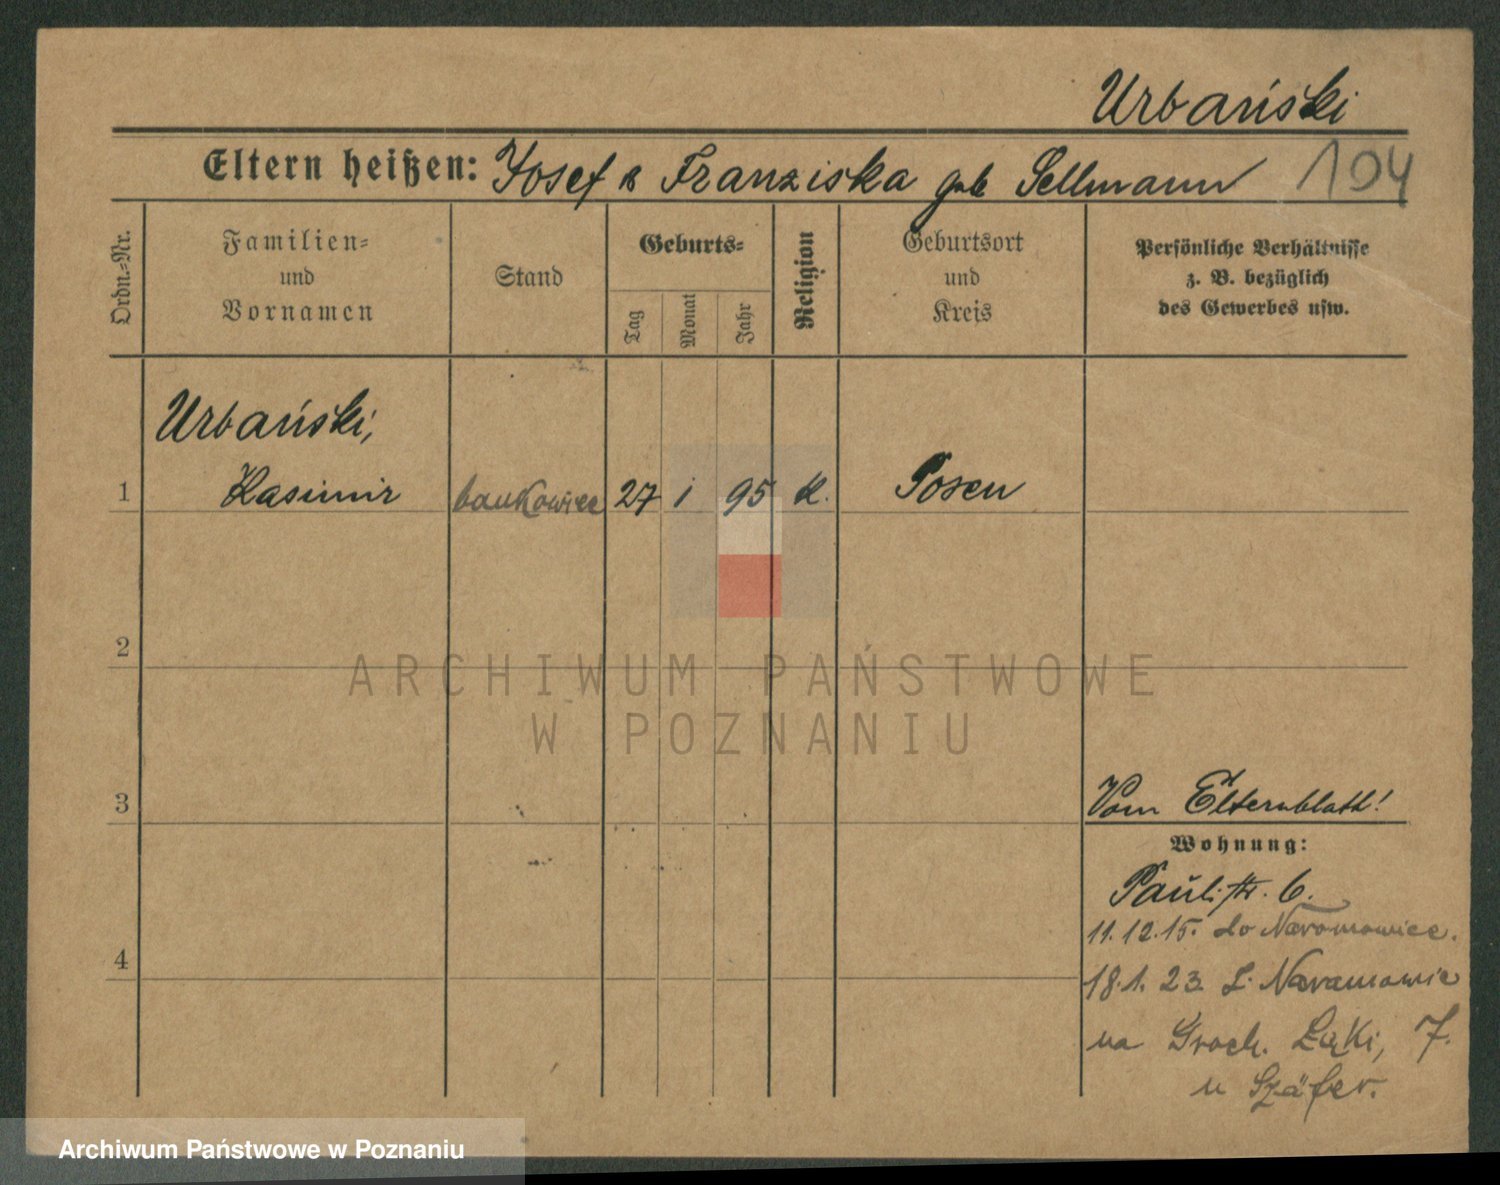 Urbański
Eltern heißen: Josef & Franziska geb Sellmann 194
Ordn.-Nr.
Familien- und Vornamen
Stand
Geburts-
Tag
Monat
Jahr
Religion
Geburtsort und Kreis
Persönliche Verhältnisse z. B. bezüglich des Gewerbes usw.
Urbański,
1 Kasimir bankowiec 27 1 95 k. Posen
2
ARCHIWUM PAŃSTWOWE
W POZNANIU
Vom Elternblatt!
3
Wohnung:
Paulistr. 6.
11.12.15. do Naramowice.
4
18.1.23 z Naramowic
na Groch. Łąki, 7.
u Szäfer.
Archiwum Państwowe w Poznaniu